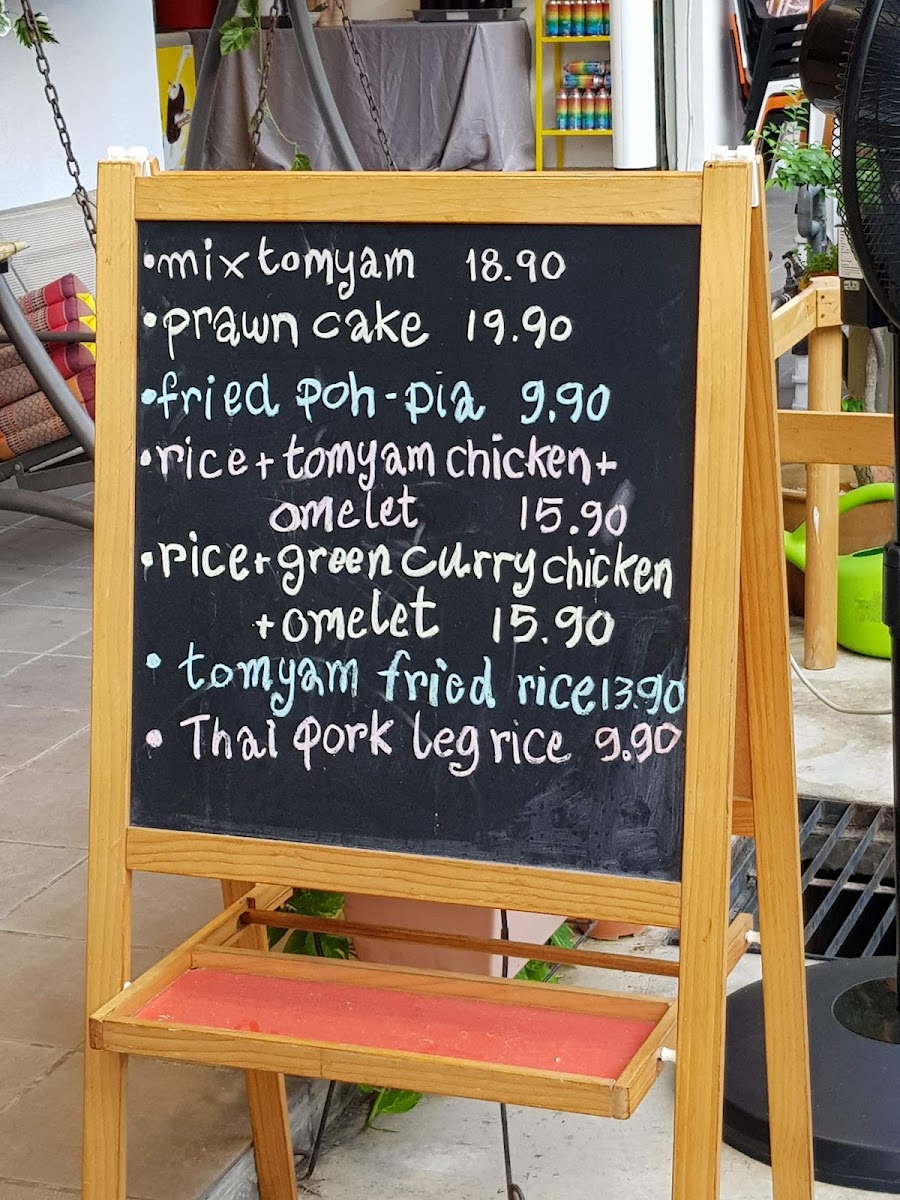 •mix tomyam 18.90
•prawn cake 19.90
•fried poh-pia 9.90
•rice+tomyam chicken+
omelet 15.90
•rice+green curry chicken
+omelet 15.90
• tomyam fried rice 13.90
• Thai pork leg rice 9.90